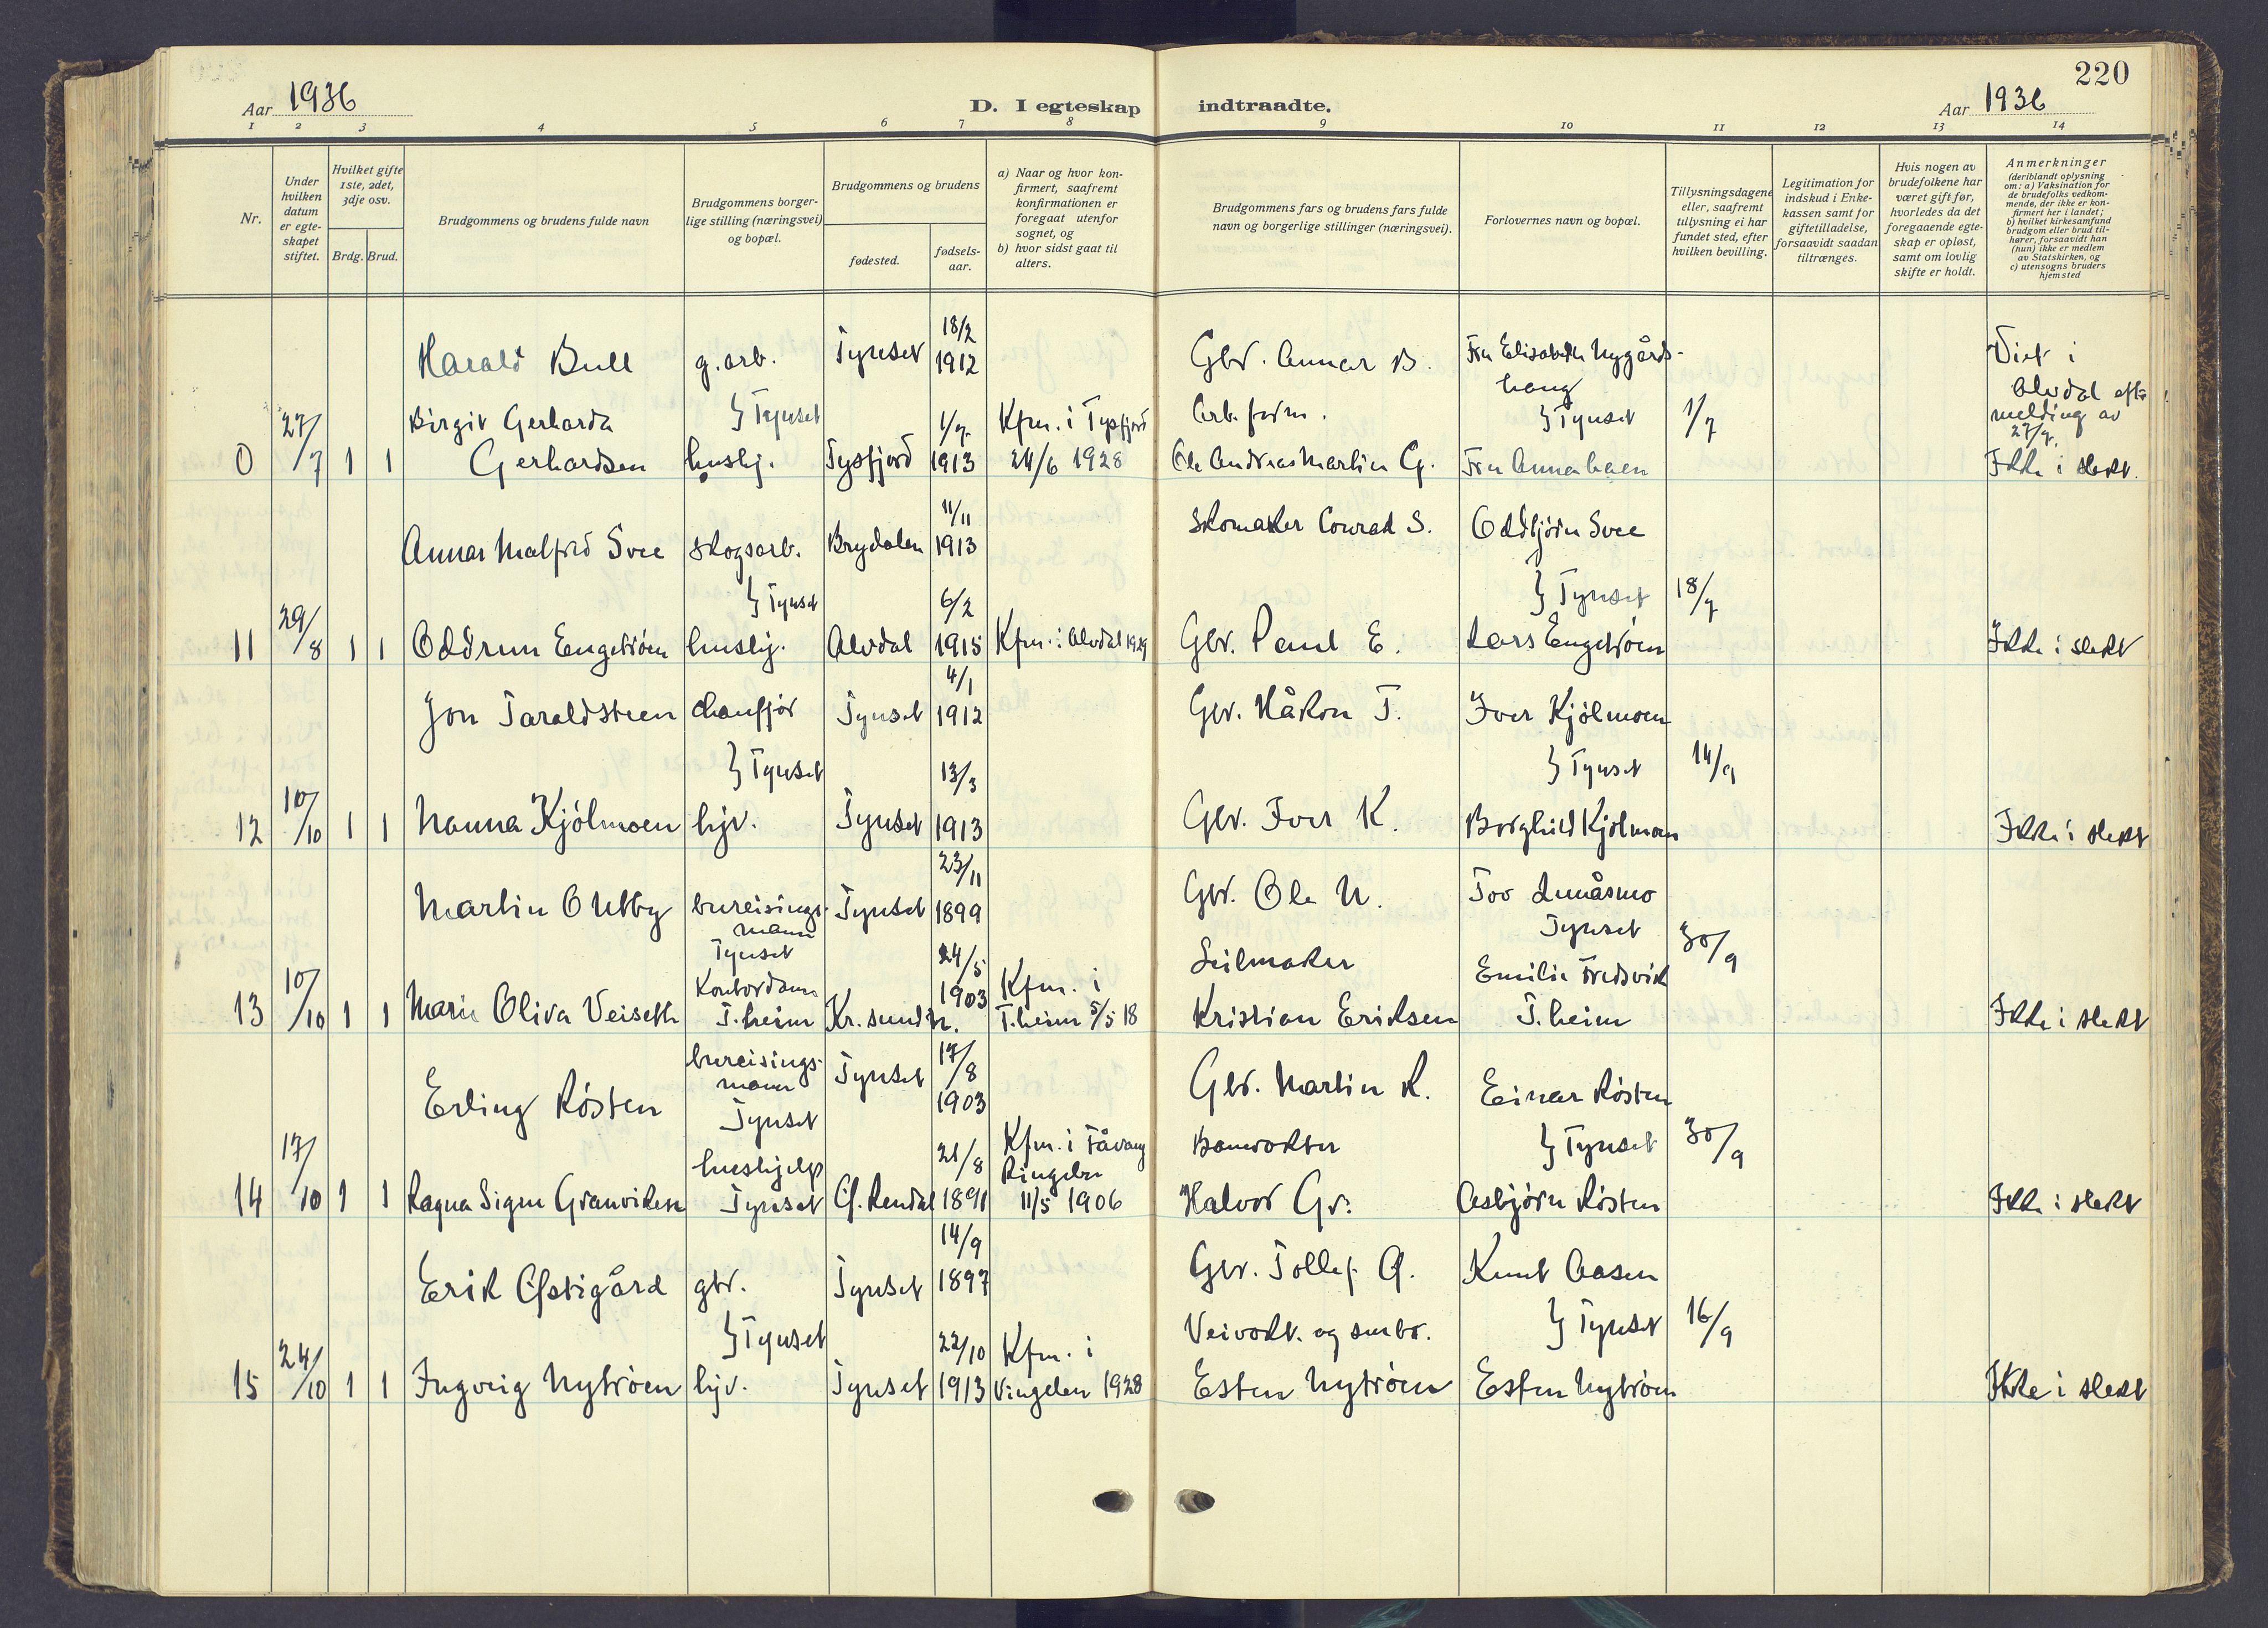 220
Aar 1936
D. I egteskap indtraadte.
Aar 1936
1 2 3 4 5 6 7 8 9 10 11 12 13 14
Nr.
Under hvilken datum er egteskapet stiftet.
Hvilket gifte 1ste, 2det, 3dje osv.
Brdg. Brud.
Brudgommens og brudens fulde navn
Brudgommens borgerlige stilling (næringsvei) og bopæl.
Brudgommens og brudens
fødested.
fødselsaar.
a) Naar og hvor konfirmert, saafremt konfirmationen er foregaat utenfor sognet, og
b) hvor sidst gaat til alters.
Brudgommens fars og brudens fars fulde navn og borgerlige stillinger (næringsvei).
Forlovernes navn og bopæl.
Tillysningsdagene eller, saafremt tillysning ei har fundet sted, efter hvilken bevilling.
Legitimation for indskud i Enkekassen samt for giftetilladelse, forsaavidt saadan tiltrænges.
Hvis nogen av brudefolkene har været gift før, hvorledes da det foregaaende egteskap er opløst, samt om lovlig skifte er holdt.
Anmerkninger
(deriblandt oplysning om: a) Vaksination for de brudefolks vedkommende, der ikke er konfirmert her i landet;
b) hvilket kirkesamfund brudgom eller brud tilhører, forsaavidt han (hun) ikke er medlem av Statskirken, og
c) utensogns bruders hjemsted
Harald Bull g. arb. Tynset 18/2 1912 Gbr. Annar B. Fru Elisabeth Nygårdshaug Viet i Alvdal efter melding av 27/7.
} Tynset Arb.form. } Tynset 1/7
0 27/7 1 1 Birgit Gerharda Gerhardsen hushj. Tysfjord 1/7 1913 Kfm. i Tysfjord 24/6 1928 Ole Andreas Martin G. Fru Anna Ikke i slekt.
Annar Malfred Svee skogsarb. Brydalen 11/11 1913 Skomaker Conrad S. Oddbjørn Svee
} Tynset } Tynset 18/7
11 29/8 1 1 Oddrun Engstrøm hushj. Alvdal 6/2 1915 Kfm. i Alvdal 1929 Gbr. Paul E. Lars Engstrøm Ikke i slekt
Jon Taraldsteen chauffør Tynset 4/1 1912 Gbr. Håkon T. Iver Kjølmoen
} Tynset } Tynset 14/9
12 10/10 1 1 Nanna Kjølmoen hjv. Tynset 13/3 1913 Gbr. Iver K. Borghild Kjølmoen Ikke i slekt
Martin O Utby bureisingsmann Tynset Tynset 23/11 1899 Gbr. Ole U. Tov Lunåsmo Tynset 30/9
13 10/10 1 1 Marie Oliva Veiseth Kontordame T.heim Kr.sund N. 24/5 1903 Kfm. i T.heim 5/5 18 Seilmaker Kristian Eriksen Emilie Fredsvik T.heim Ikke i slekt
Erling Røsten bureisingsmann Tynset Tynset 17/8 1903 Gbr. Martin R. Einar Røsten
} Tynset 30/9
14 17/10 1 1 Ragna Signe Granviken hushjelp Tynset Ø. Rendal 21/8 1891 Kfm. i Fåvang Ringebu 11/5 1906 Banevokter Halvor Gr. Asbjørn Røsten Ikke i slekt
Erik Østigård gbr. Tynset 14/9 1897 Gbr. Tollef Ø. Knut Aasen
} Tynset } Tynset 16/9
15 24/10 1 1 Ingveig Nytrøen hjv. Tynset 22/10 1913 Kfm. i Vingelen 1928 Veivokt. og smbr. Esten Nytrøen Esten Nytrøen Ikke i slekt